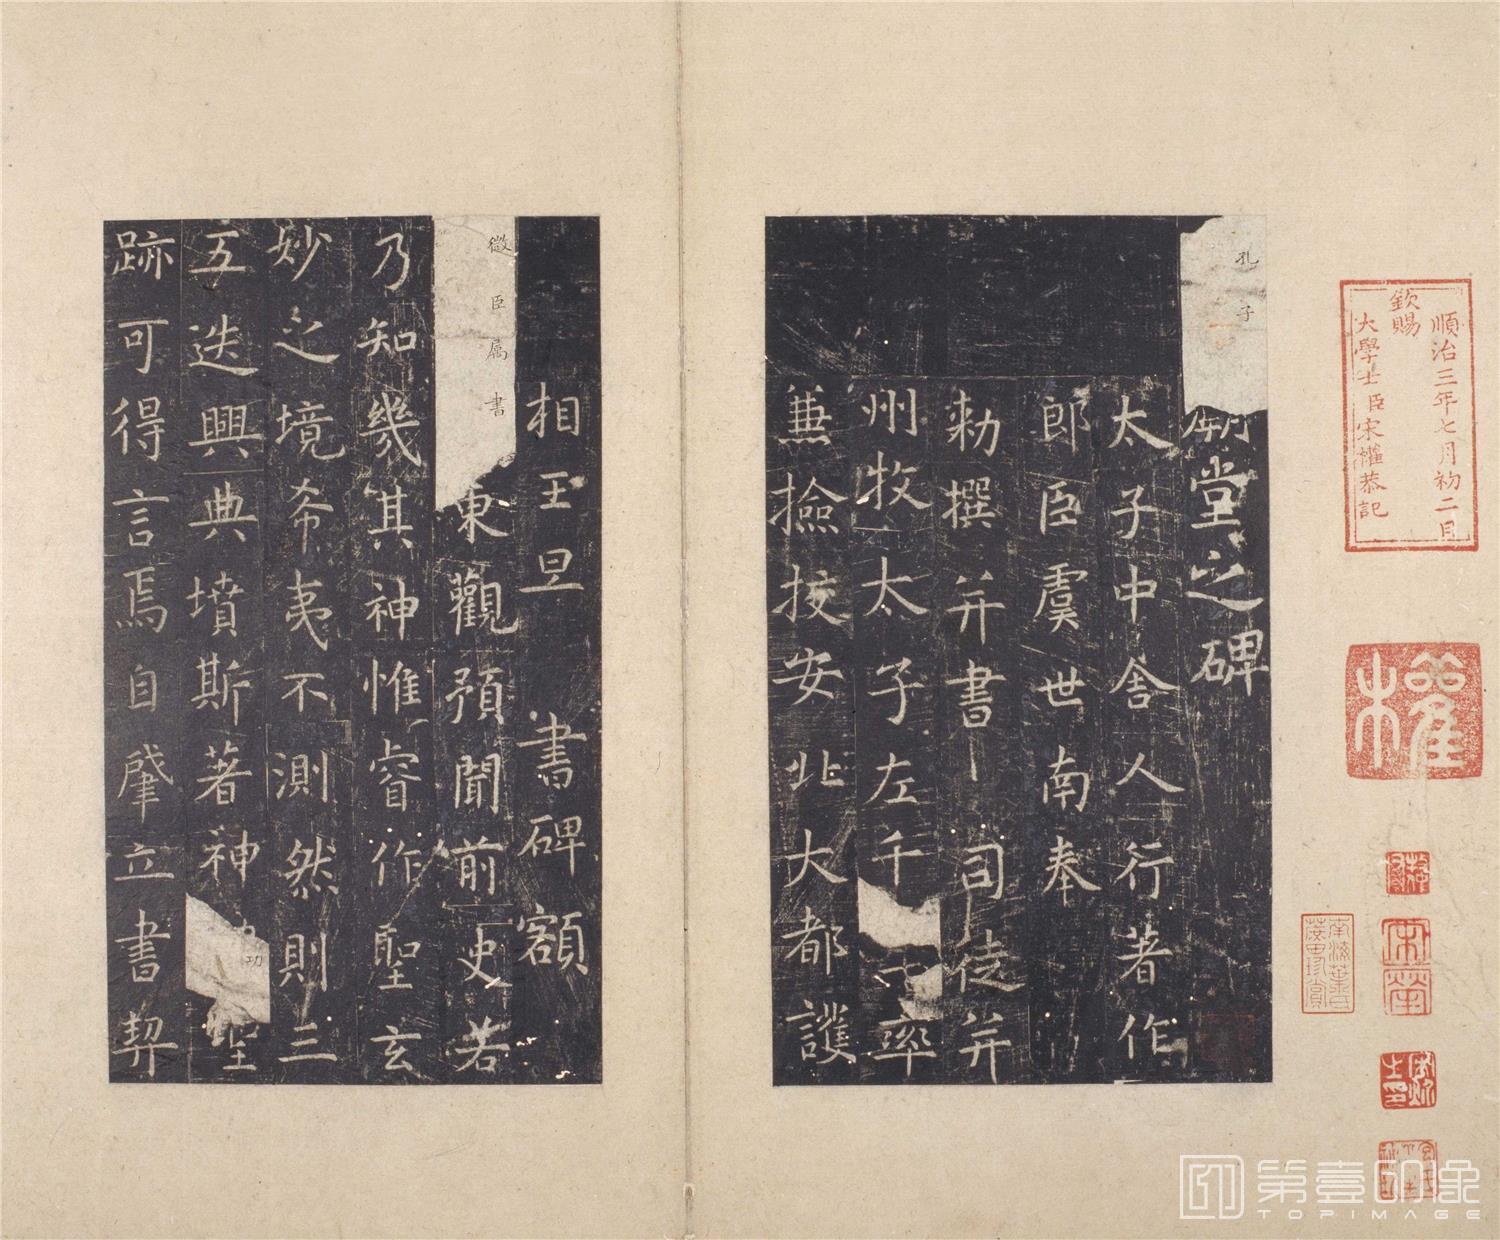 順治三年七月初二日
欽賜
大學士臣宋權恭記
權
孔子
廟堂之碑
太子中舍人行著作
郎臣虞世南奉
勑撰并書 司徒并
州牧太子左千
率
兼撿挍安北大都護
相王旦 書碑額
微臣属書
東觀預聞前史若
乃知幾其神惟睿作聖玄
妙之境希夷不測然則三
五迭興典墳斯著神
功
聖
跡可得言焉自肇立書契
第壹印象
TOPIMAGE